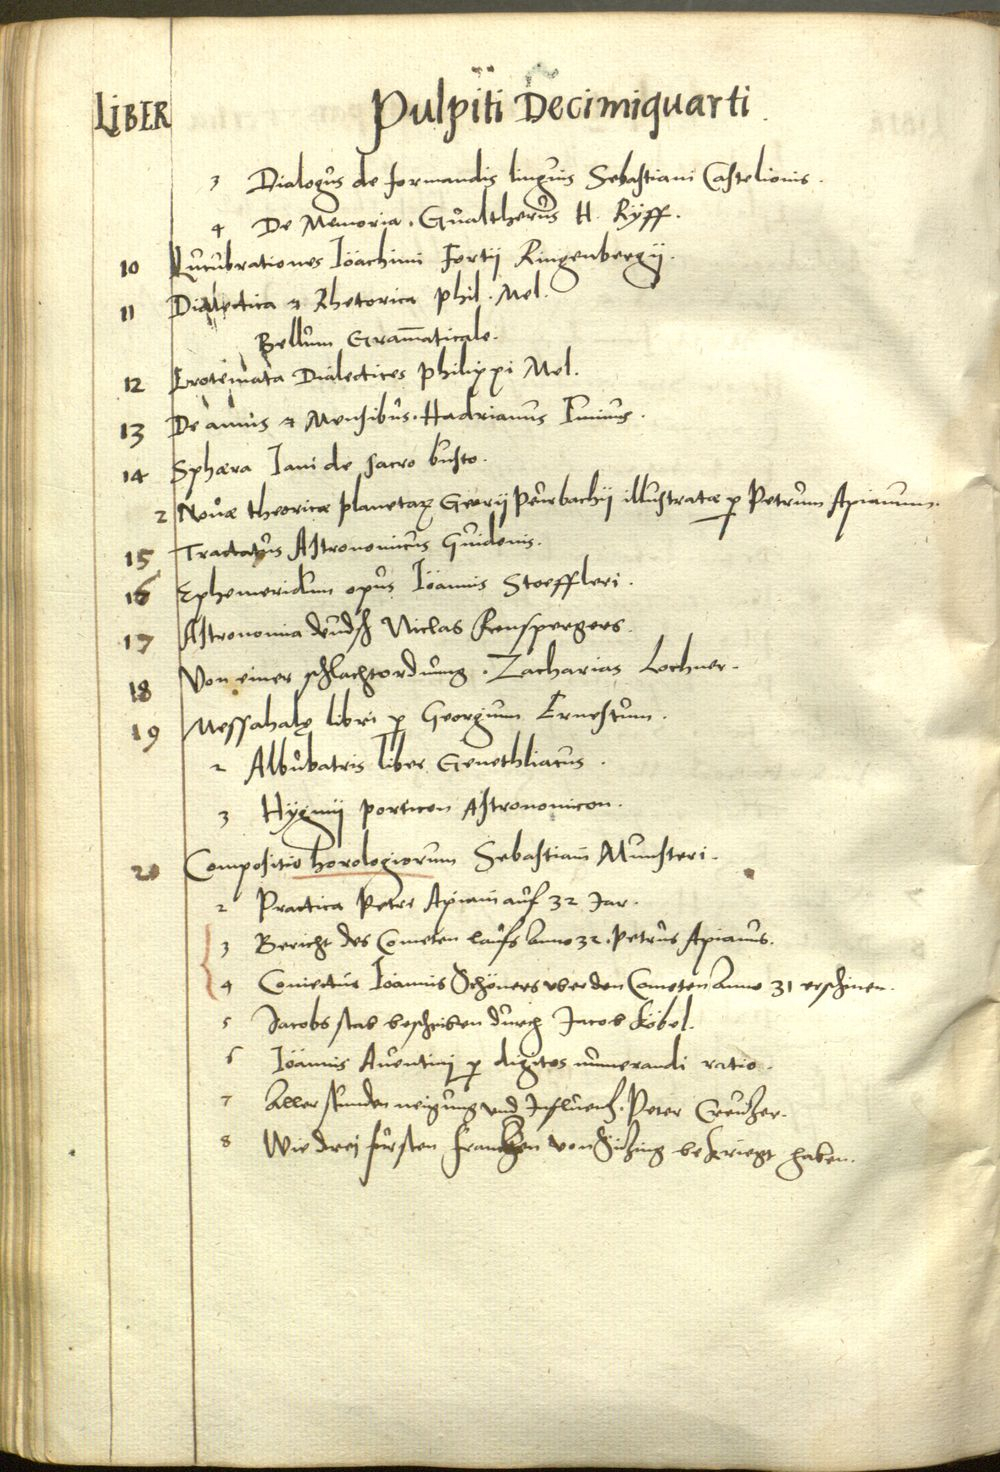 LIBER Pulpiti Decimiquarti.
3 Dialogus de formandis linguis Sebastiani Castelionis.
4 De Memoria. Gualtherus H. Ryff.
10 Lucubrationes Ioachimi Fortij Ringenbergij.
11 Dialectica & Rhetorica Phil. Mel.
Bellum Gram̄aticale.
12 Erotemata Dialectices Philippi Mel.
13 De annis & Mensibus. Hadrianus Iunius.
14 Sphæra Iani de sacro busto.
2 Nouæ theoricæ planetaꝝ Georij Peurbachij illustratæ ꝑ Petrum Apianum.
15 Tractatus Astronomicus Guidonis.
16 Ephemeridum opus Ioannis Stoeffleri.
17 Astronomia deudsch Niclas Renspergers.
18 Von einer schlachtordnung. Zacharias Lochner.
19 Messahalę libri ꝑ Georgium Ernestum.
2 Albubatris liber Genethliacus.
3 Hyginij poeticon Astronomicon.
20 Compositio horologiorum Sebastiani Munsteri.
2 Practica Petri Apiani auf 32 Jar.
3 Bericht des Cometen laufs Anno 32. Petrus Apianus.
4 Coniectur Ioannis Schöners uber den Cometen Anno 31 erschinen.
5 Jacobs stab beschriben durch Jacob Köbel.
6 Ioannis Auentinj ꝑ digitos numerandi ratio.
7 Aller stunden neigung und Influentz. Peter Creutzer.
8 Wie drej fursten Frantzen von Sicking bekriegt haben.